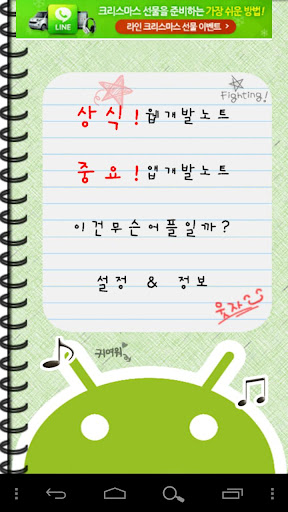 크리스마스 선물을 준비하는 가장 쉬운 방법!
LINE
라인 크리스마스 선물 이벤트
Fighting!
상식! 웹개발노트
중요! 앱개발노트
이건무슨어플일까?
설정 & 정보
웃자
귀여워